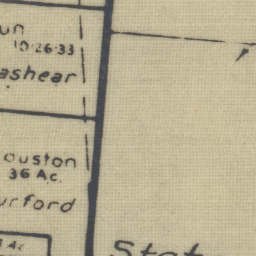 un
10-26-33
ashear
ouston
36 Ac.
urford
Ac
Stat